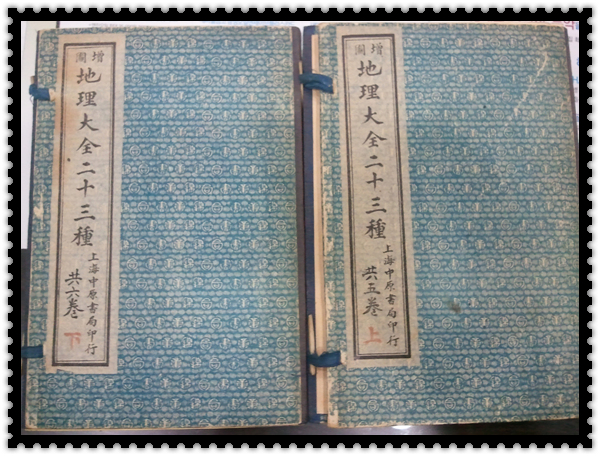 增圖
地理大全二十三種
上海中原書局印行
共五卷
上
增圖
地理大全二十三種
上海中原書局印行
共六卷
下